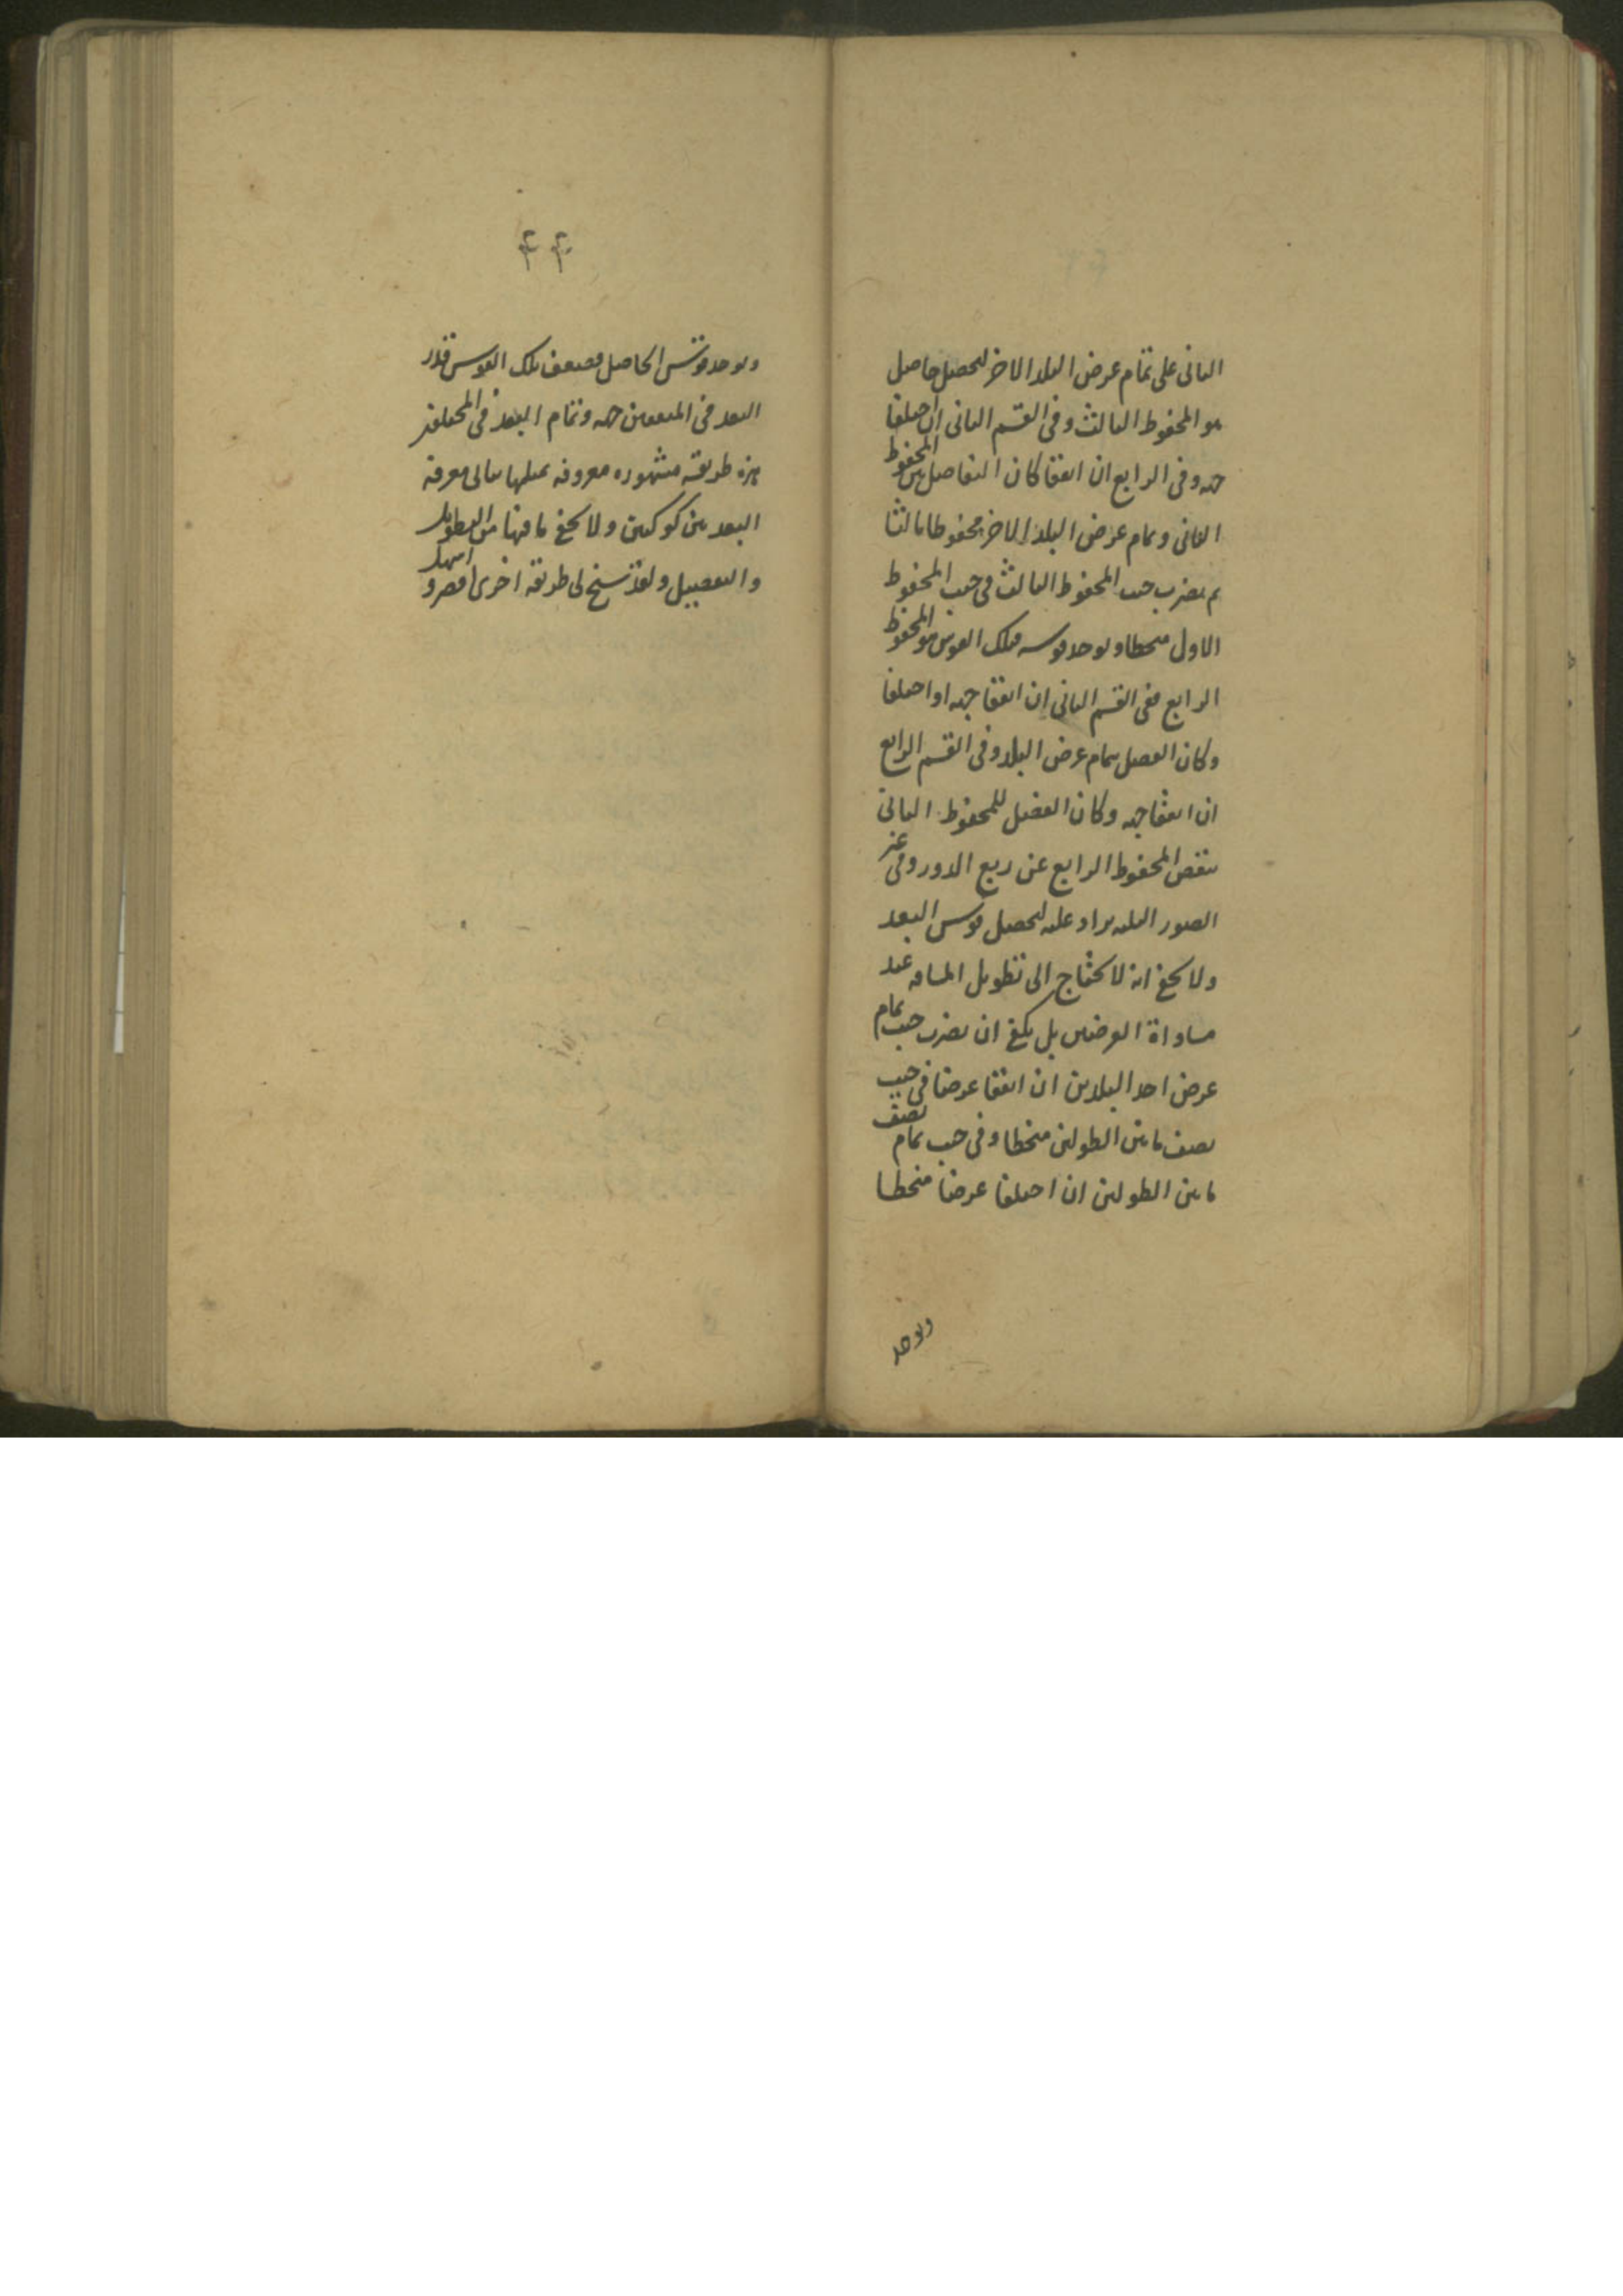 الثانى على تمام عرض البلد الاخر ليحصل حاصل
هو المحفوظ الثالث وفى القسم الثانى ان اختلفا
جهه وفى الرابع ان اتفقا كان التفاضل بين المحفوظ
الثانى وتمام عرض البلد الاخر محفوظا ثالثا
ثم يضرب جيب المحفوظ الثالث فى جيب المحفوظ
الاول منحطا ويوخذ قوسه فتلك القوس هو المحفوظ
الرابع ففى القسم الثانى ان اتفقا جهه او اختلفا
وكان الفضل لتمام عرض البلد وفى القسم الرابع
ان اتفقا جهه وكان الفضل للمحفوظ الثانى
ينقص المحفوظ الرابع عن ربع الدور وفى غير
الصور الثلثه يزاد عليه ليحصل قوس البعد
ولا يخفى انه لا يحتاج الى تطويل المسافه عند
مساواة العرضين بل يكفى ان يضرب جيب تمام
عرض احد البلدين ان اتفقا عرضا فى جيب
نصف ما بين الطولين منحطا وفى جيب تمام نصف
ما بين الطولين ان اختلفا عرضا منحطا
ويوخذ
۴۴
ويوخذ قوس الحاصل فضعف تلك القوس قدر
البعد فى المتفقين جهه وتمام البعد فى المختلفين
هذه طريقه مشهوره معروفه بمثلها معرفة
البعد بين كوكبين ولا يخفى ما فيها من التطويل
والتفصيل ولقد سنح لى طريقه اخرى اقصر واسهل